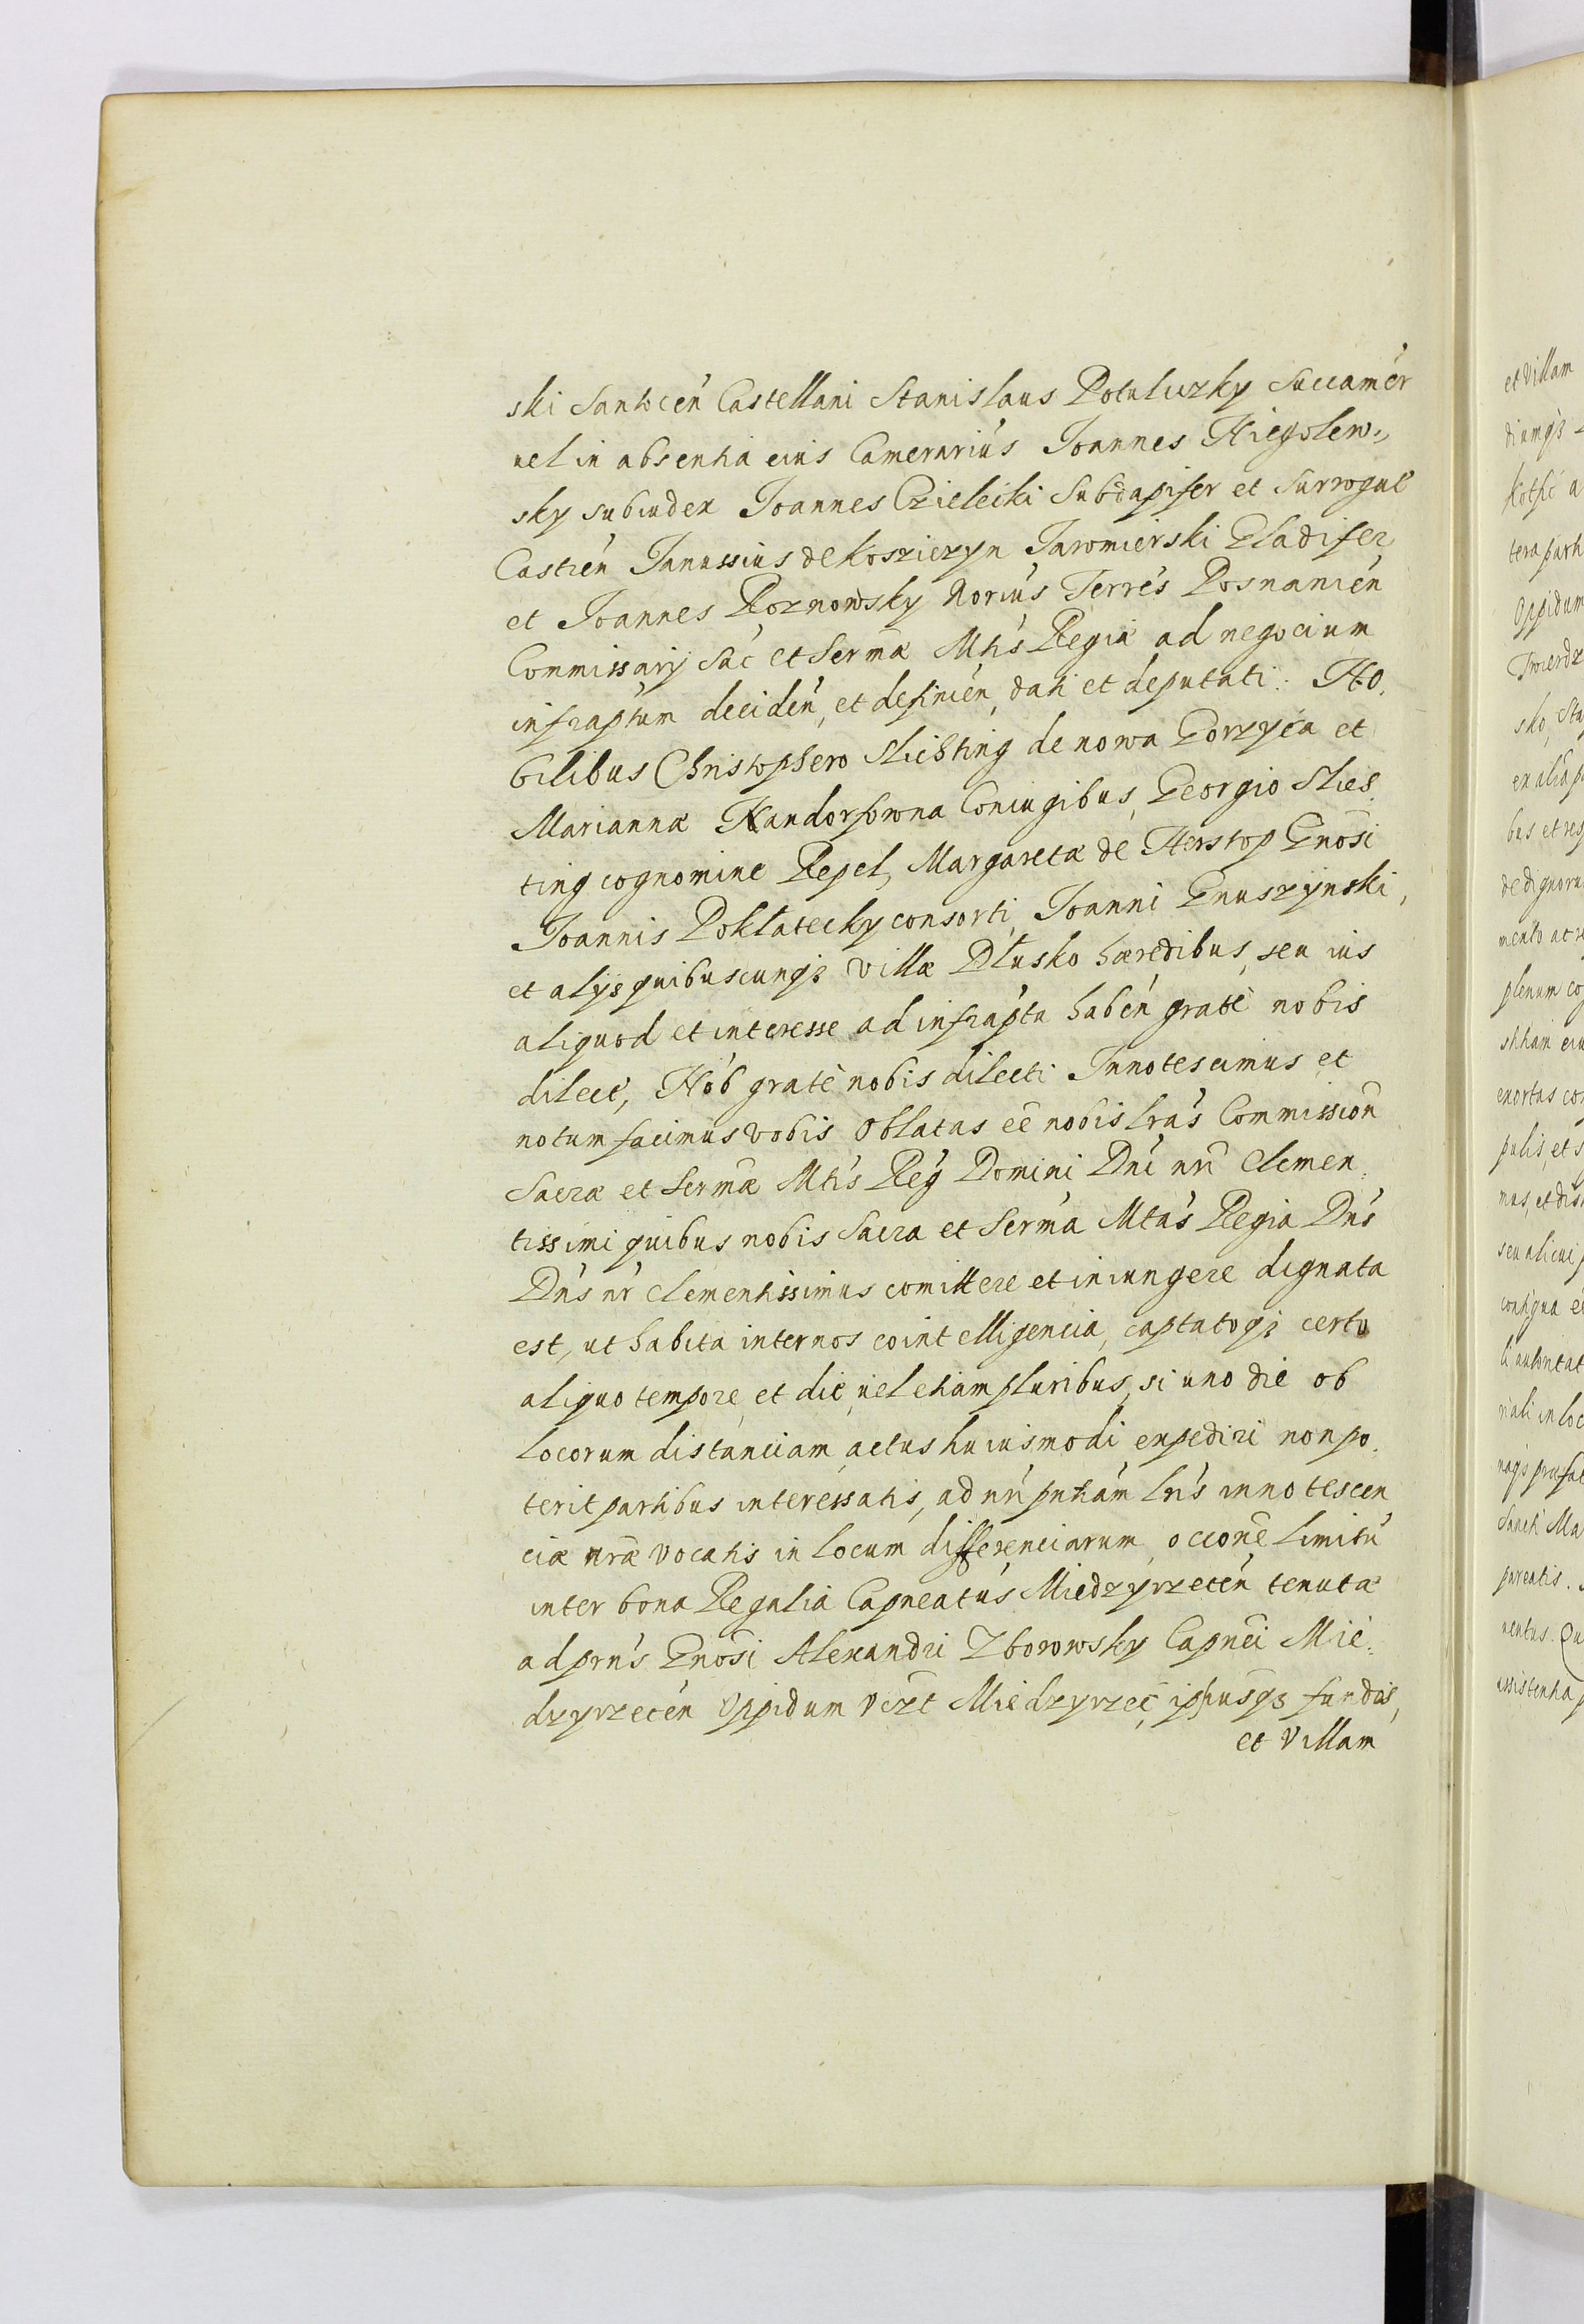 ski Santocen̄ Castellani Stanislaus Potuliczky Succamer
uel in absentia eius Camerarius Joannes Niegolew-
sky subiudex Joannes Czielecki Subdapifer et Surrogat
Castren̄ Janussius de Kosziczyn Jaromierski Gladifer
et Joannes Roznowsky Norius Terres Posnanien̄
Commissarij Sac̄ et Serm̄æ Mtis Regiæ ad negocium
infraptum deciden̄, et definien̄, dati et deputati. No.
bilibus Christophero Slichting de nowa Gorzyca et
Mariannæ Nandorfowna Coniugibus, Georgio Slies
ting cognomine Repel, Margaretæ de Herstop Gnosi
Joannis Poklatecky consorti, Joanni Gnuszynski,
et alijs quibuscunqз villæ Dłusko hæredibus, seu ius
aliquod et interesse ad infrapta haben̄ gratè nobis
dilect̄, Nob gratè nobis dilecti Innotescimus et
notum facimus vobis Oblatas eē nobis lras Commission̄
Sacræ et Serm̄æ Mtis Reg Domini Dni nri Clemen
tissimi quibus nobis Sacra et Serma Mtas Regia Dns
Dns nr clementissimus comittere et iniungere dignata
est, ut habita internos cointelligencia, captatoqз certo
aliquo tempore et die, uel etiam pluribus, si uno die ob
locorum distanciam actus huiusmodi expediri non po.
terit partibus interessatis, ad nri pntiam lris innotescen
ciæ nræ vocatis in locum differenciarum, occione limitū
inter bona Regalia Capneatus Miedzyrzecen̄ tenutæ
ad prns Gnosi Alexandri Zborowsky Capnei Mie.
dzyrzecen̄ Oppidum vczt Miedzyrzec̄, ipsiusqз fundos,
et Villam